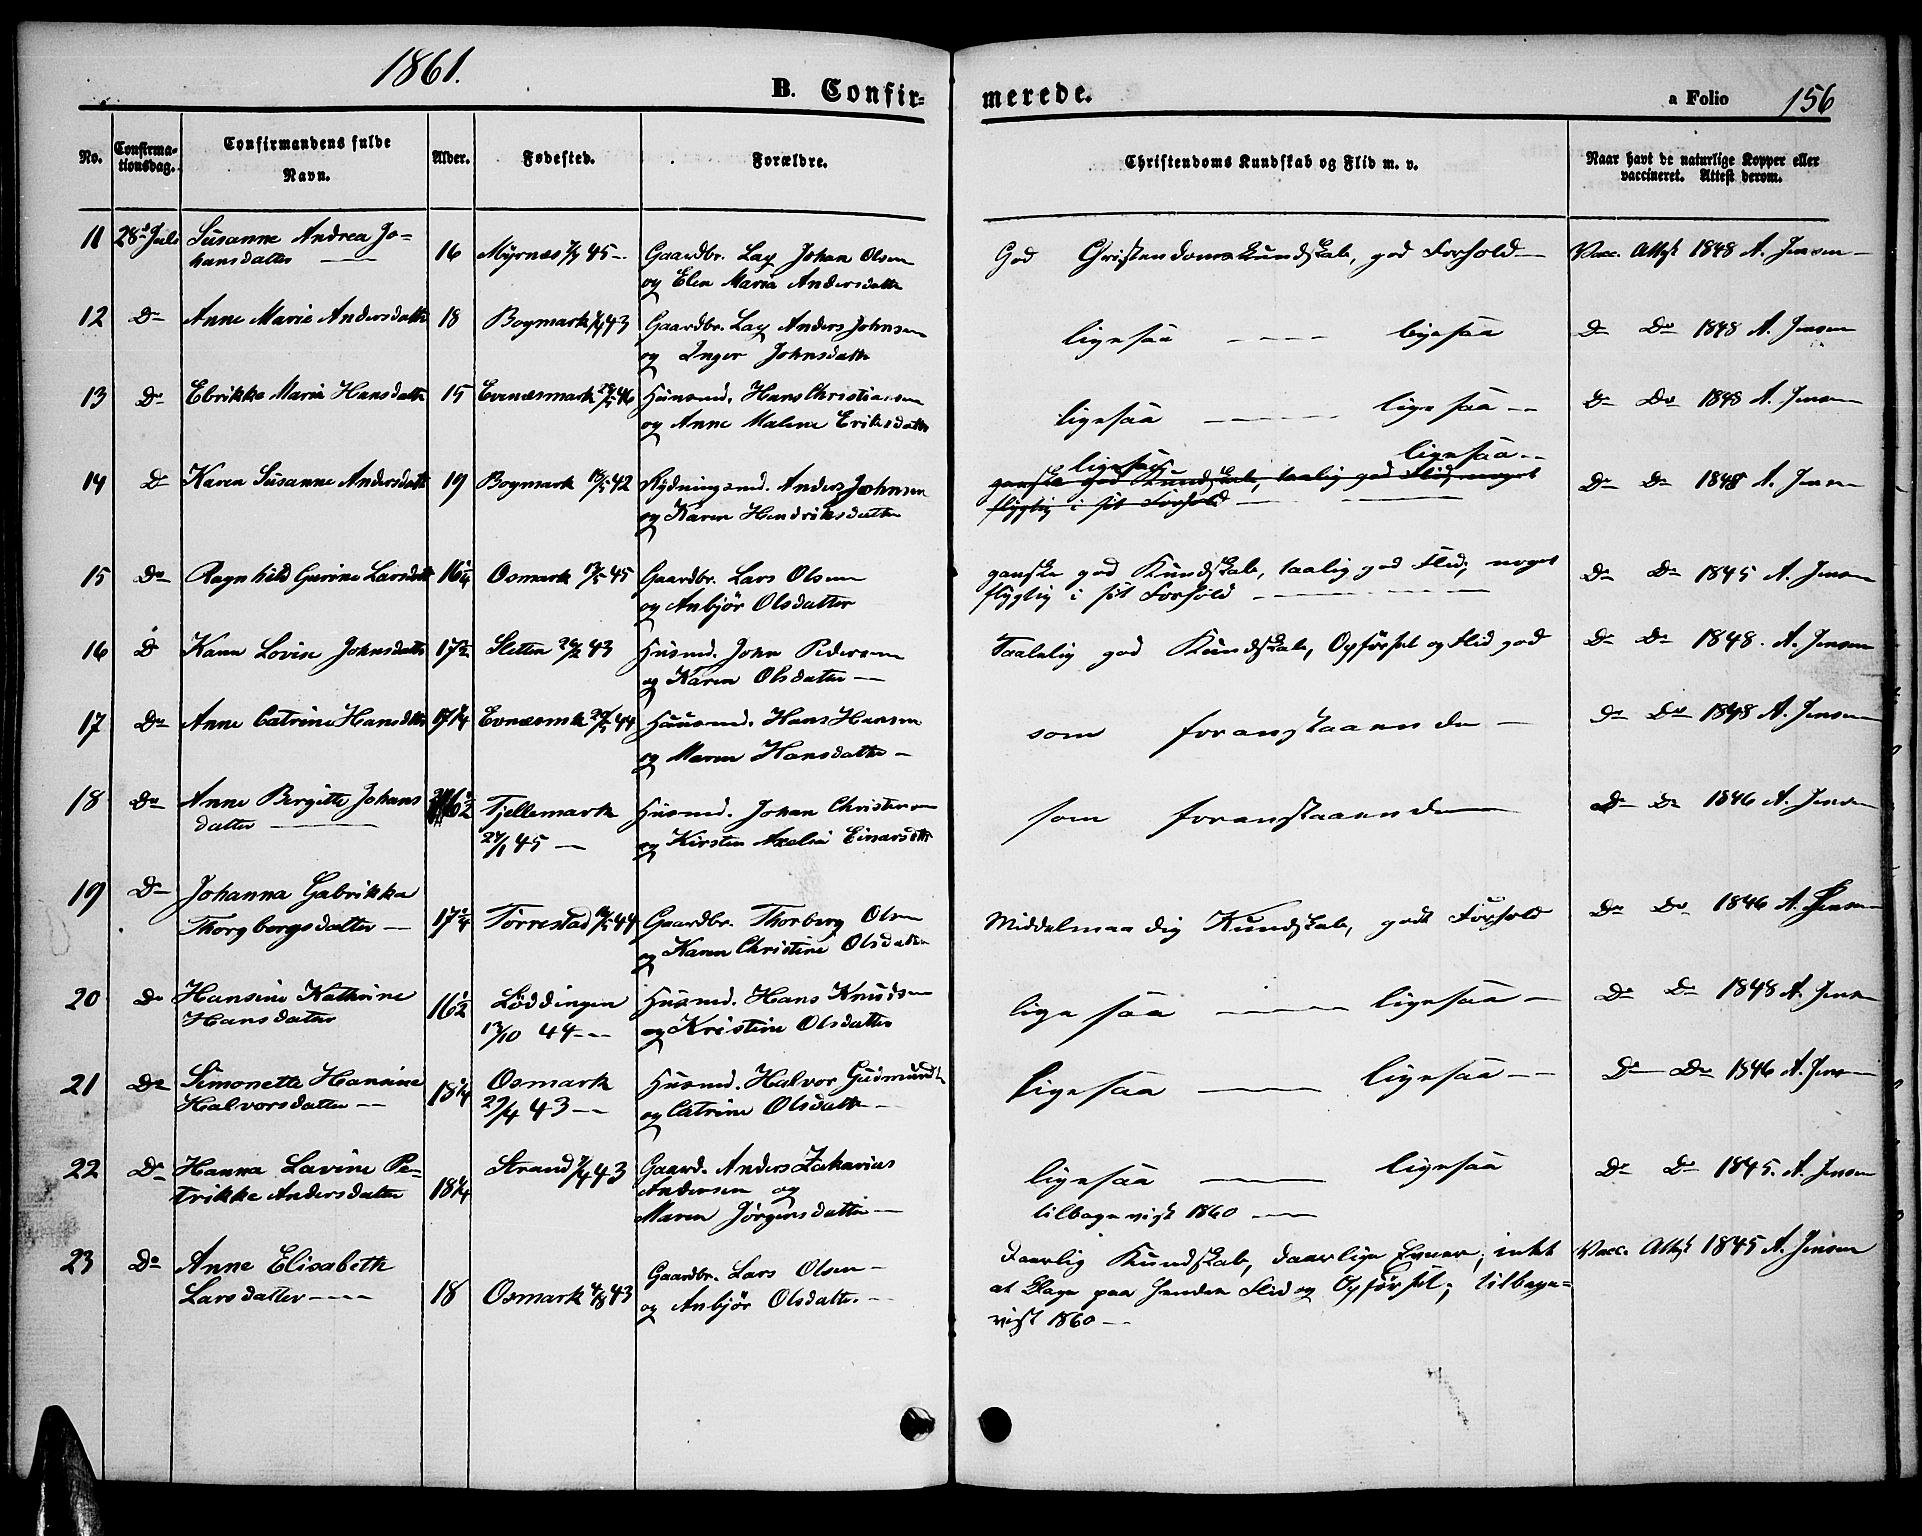 1861.
B. Confir-
merede.
a Folio 156
No.
Confirma-
tionsdag.
Confirmandens fulde
Navn.
Alder.
Fødested.
Forældre.
Christendoms Kundskab og Flid m. v.
Naar havt de naturlige Kopper eller
vaccineret. Attest derom.
11 28de Juli Susanne Andrea Jo-
hansdatter — 16 Myrnes 45 — Gaardbr. Lay Johan Olsen
og Elen Maria Andersdatter
God Christendomskundskab, god Forhold — Vacc. Attest 1848 A. Jensen —
12 Do Anne Marie Andersdatter 18 Bogmark 43 Gaardbr. Lay Anders Johnsen
og Inger Johnsdatter
ligesaa — ligesaa Do Do 1848 A. Jensen
13 Do Ebrikke Marie Hansdatter 15 Evenæsmark 46 Husmd. Hans Christiansen
og Anne Malene Eriksdatter
ligesaa — ligesaa — Do Do 1848 A. Jensen
ligesaa ligesaa —
14 Do Karen Susanne Andersdatter 19 Bogmark 42 Rydningsmd. Anders Johnsen
og Karen Hendriksdatter
ganske god Kundskab, taalig god Flid, noget
flygtig i sit Forhold — Do Do 1848 A. Jensen
15 Do Ragnhild Gurine Larsdatter 16 1/4 Osmark 45 Gaardbr. Lars Olsen
og Anbjør Olsdatter
ganske god Kundskab, taalig god Flid, noget
flygtig i sit Forhold — Do Do 1845 A. Jensen
16 Do Karen Lovise Johnsdatter 17 1/2 Sletten 43 Husmd. John Pedersen
og Karen Olsdatter —
Taalelig god Kundskab, Opførsel og Flid god Do Do 1848. A. Jensen
17 Do Anne Catrine Hansdtr 17 1/4 Evenæsmk 44 Huusmd. Hans Hansen
og Maren Hansdatter —
som foranstaaende — Do Do 1848 A. Jensen
18 Do Anne Bergitte Johans
datter — 16 1/2 Fjellemark
27/1 45 — Husmd. Johan Christensen
og Kirsten Axelia Einarsdtr
som foranstaaende — Do Do 1846 A. Jensen
19 Do Johanna Gabrikka
Thorgbergsdatter — 17 1/4 Tørrestad 44 Gaardbr. Thorberg Olsen
og Karen Christine Olsdatter
Middelmaadig Kundskab, godt Forhold Do Do 1846 A. Jensen
20 Do Hansine Kathrine
Hansdatter 16 1/2 Løddingen
13/10 44 — Husmd. Hans Knudsen
og Kristine Olsdatter
ligesaa — ligesaa — Do Do 1848 A. Jensen
21 Do Simonette Hansine
Halvorsdatter — 18 1/4 Osmark
29/4 43 — Husmd. Halvor Gudmunds
og Catrine Olsdatter —
ligesaa — ligesaa — Do Do 1846 A. Jensen
22 Do Hanna Lavine Pe-
trikke Andersdatter 18 1/4 Strand 43 Gaard. Anders Zakarias
Andersen og
Maren Jørgensdatter —
ligesaa — ligesaa
tilbagevist 1860 — Do Do 1845. A. Jensen
23 Do Anne Elisabeth
Larsdatter — 18 Osmark 43 Gaardbr. Lars Olsen —
og Anbjør Olsdatter —
Daarlig Kundskab, daarlige Evner, intet
at klage paa hendes Flid og Opførsel; tilbage-
vist 1860 — Vacc. Attest 1845 A. Jensen